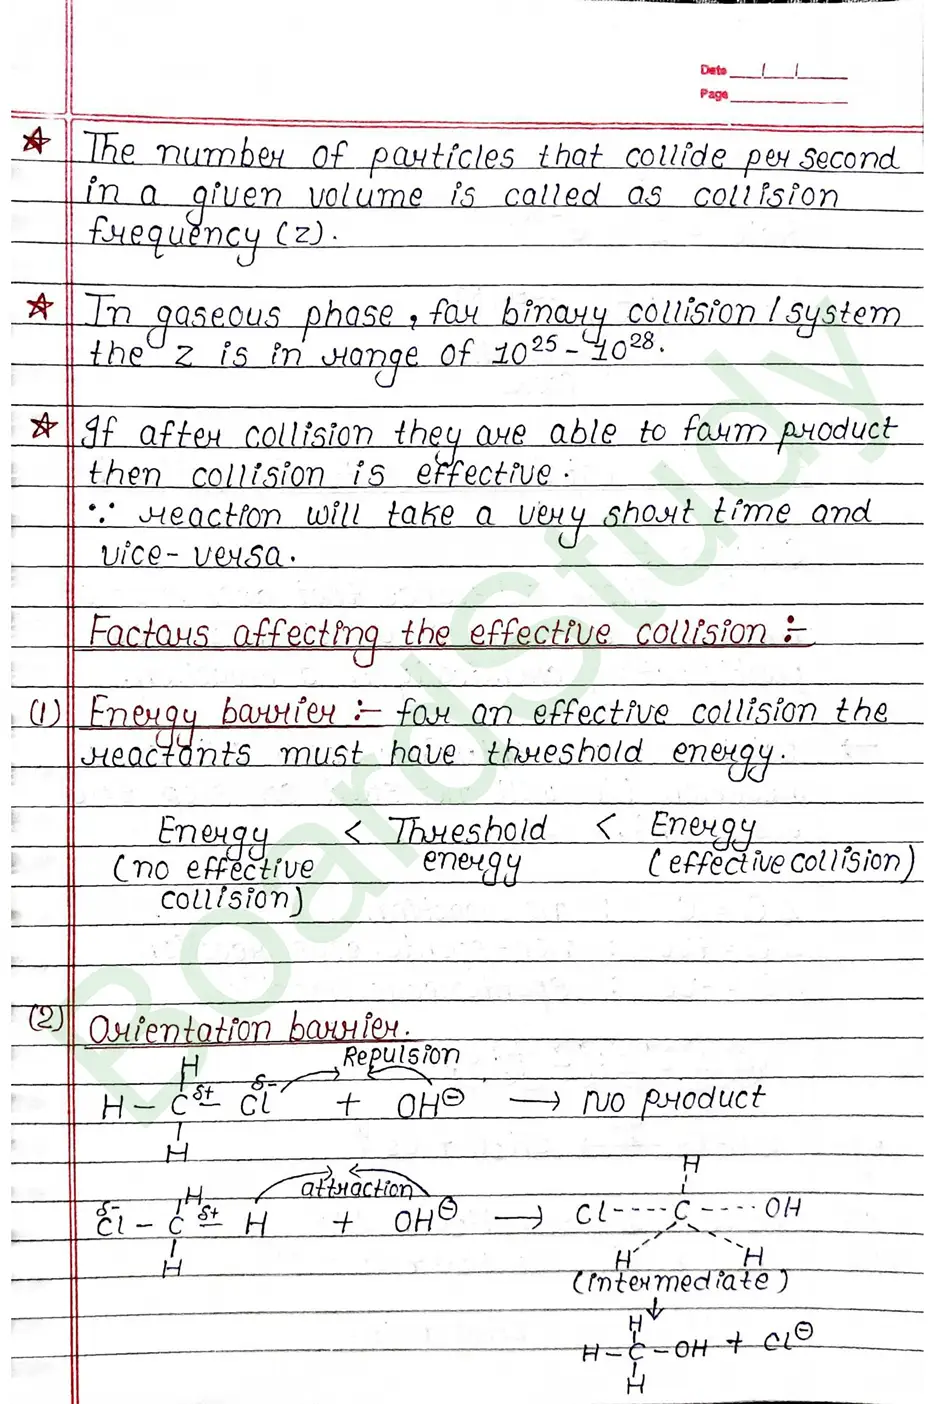 Date / /
Page
The number of particles that collide per second
in a given volume is called as collision
frequency (z).
In gaseous phase, for binary collision / system
the z is in range of 10²⁵ - 10²⁸.
If after collision they are able to form product
then collision is effective.
∵ reaction will take a very short time and
vice-versa.
Factors affecting the effective collision :-
(1) Energy barrier :- for an effective collision the
reactants must have threshold energy.
Energy < Threshold < Energy
(no effective energy (effective collision)
collision)
(2) Orientation barrier.
H Repulsion
δ+ δ-
H - C - Cl + OH⊖ → no product
H
H attraction H
δ- δ+
Cl - C - H + OH⊖ → Cl----C----OH
H H H
(intermediate)
↓
H
H-C-OH + Cl⊖
H
BoardStudy